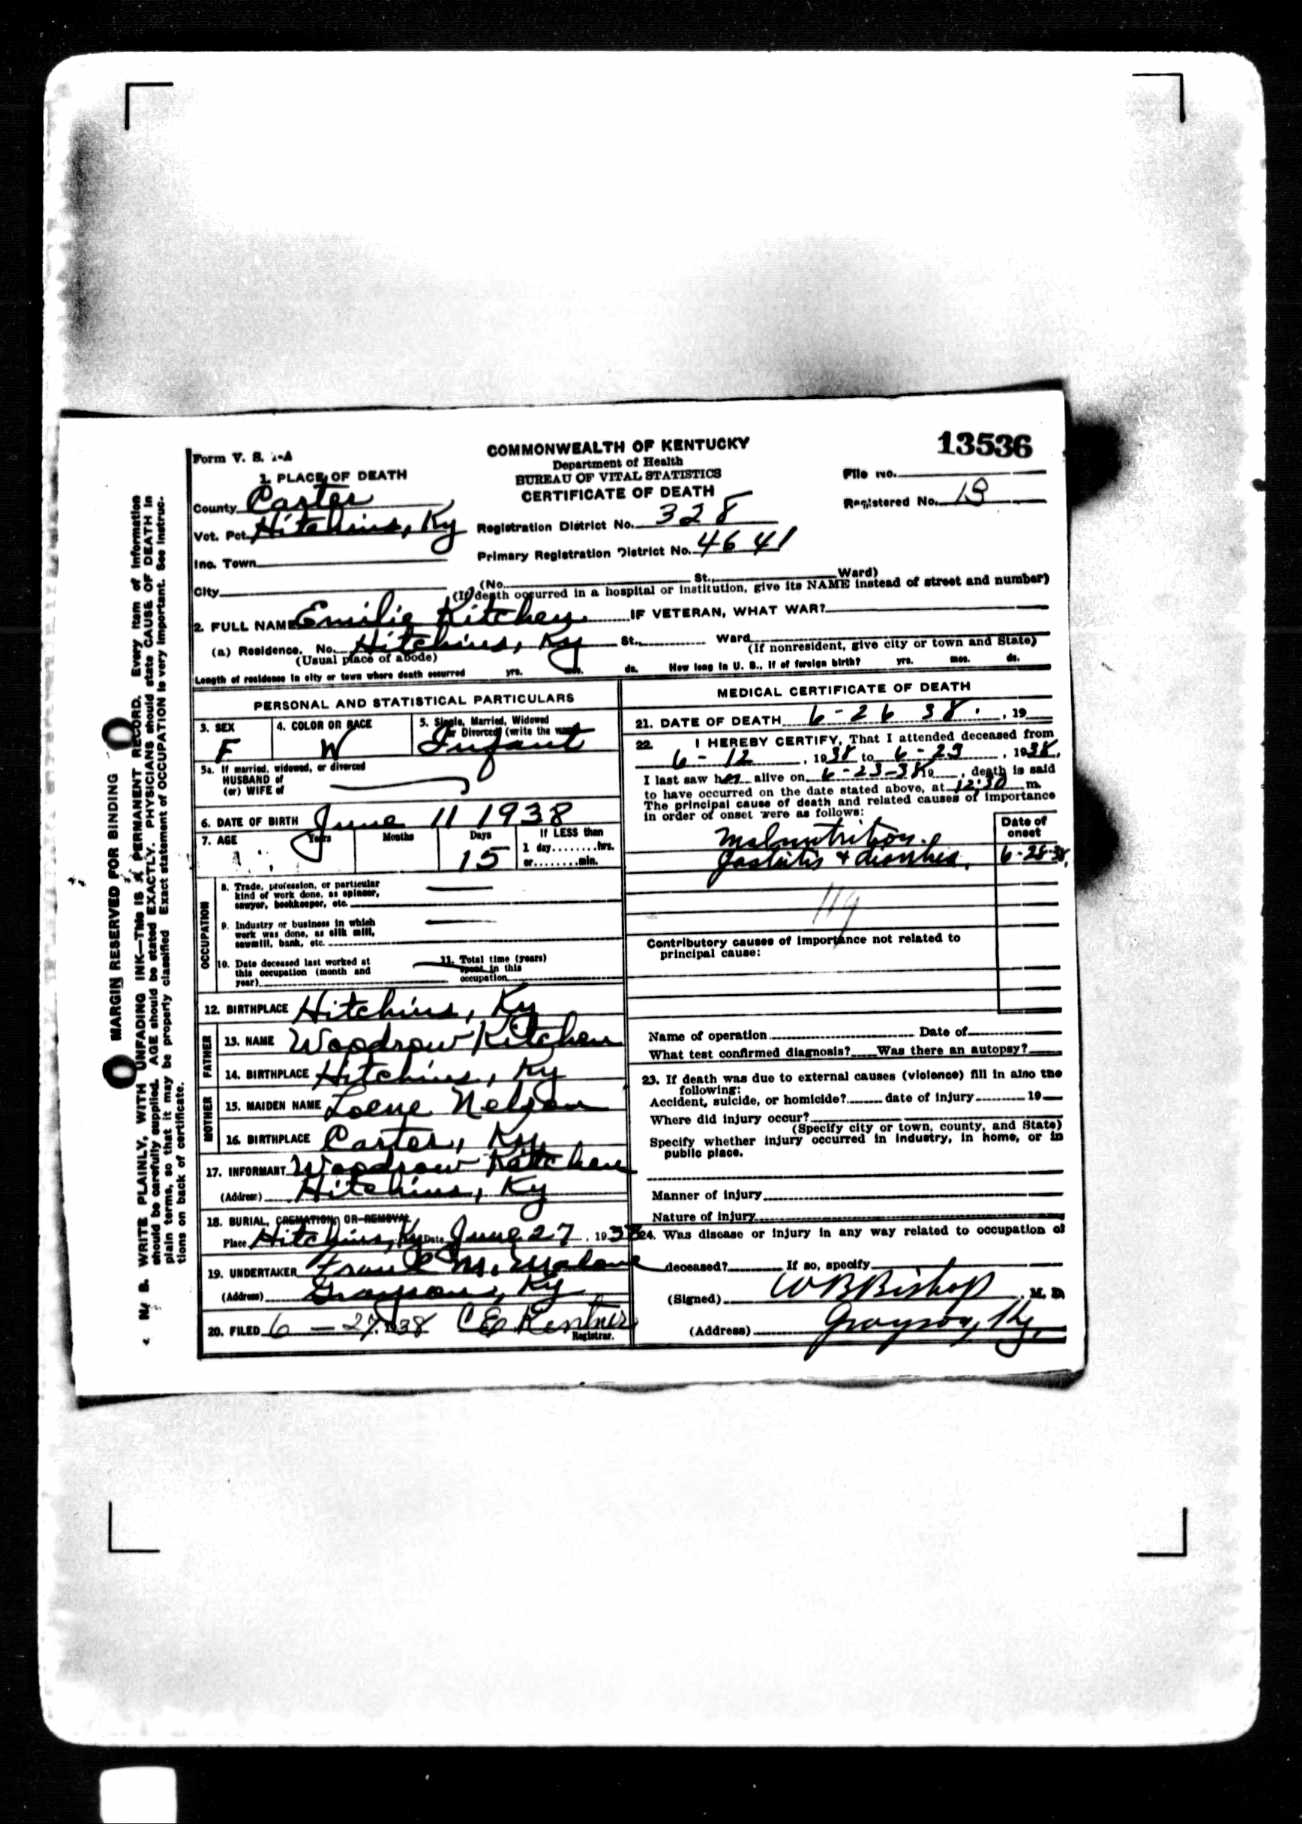 Form V. S. 1-A
COMMONWEALTH OF KENTUCKY
Department of Health
BUREAU OF VITAL STATISTICS
CERTIFICATE OF DEATH
13536
File No.
Registered No. 18
1. PLACE OF DEATH
County Carter
Vot. Pct. Hitchins, Ky
Registration District No. 328
Inc. Town
Primary Registration District No. 4641
City (No. St., Ward)
(If death occurred in a hospital or institution, give its NAME instead of street and number)
2. FULL NAME Emilie Kitchen IF VETERAN, WHAT WAR?
(a) Residence. No. Hitchins, Ky St. Ward
(Usual place of abode) (If nonresident, give city or town and State)
Length of residence in city or town where death occurred yrs. mos. ds. How long in U. S., if of foreign birth? yrs. mos. ds.
PERSONAL AND STATISTICAL PARTICULARS
3. SEX F
4. COLOR OR RACE W
5. Single, Married, Widowed
or Divorced (write the word)
Infant
5a. If married, widowed, or divorced
HUSBAND of
(or) WIFE of
6. DATE OF BIRTH June 11 1938
7. AGE Years Months Days 15
If LESS than
1 day........hrs.
or........min.
OCCUPATION
8. Trade, profession, or particular
kind of work done, as spinner,
sawyer, bookkeeper, etc.
9. Industry or business in which
work was done, as silk mill,
sawmill, bank, etc.
10. Date deceased last worked at
this occupation (month and
year)
11. Total time (years)
spent in this
occupation
12. BIRTHPLACE Hitchins, Ky
FATHER
13. NAME Woodrow Kitchen
14. BIRTHPLACE Hitchins, Ky
MOTHER
15. MAIDEN NAME Loene Nelson
16. BIRTHPLACE Carter, Ky.
17. INFORMANT Woodrow Kitchen
(Address) Hitchins, Ky
18. BURIAL, CREMATION, OR REMOVAL
Place Hitchins, Ky Date June 27, 1938
19. UNDERTAKER Frank M. Malone
(Address) Grayson, Ky
20. FILED 6-27-1938 C E Kentner
Registrar.
MEDICAL CERTIFICATE OF DEATH
21. DATE OF DEATH 6-26 38. , 19
22. I HEREBY CERTIFY, That I attended deceased from
6-12, 1938 to 6-23, 1938,
I last saw her alive on 6-23-38, 19 , death is said
to have occurred on the date stated above, at 12:30 m.
The principal cause of death and related causes of importance
in order of onset were as follows:
Date of
onset
Malnutrition.
Gastritis & diarrhea. 6-23-38.
119
Contributory causes of importance not related to
principal cause:
Name of operation Date of
What test confirmed diagnosis? Was there an autopsy?
23. If death was due to external causes (violence) fill in also the
following:
Accident, suicide, or homicide? date of injury 19
Where did injury occur?
(Specify city or town, county, and State)
Specify whether injury occurred in industry, in home, or in
public place.
Manner of injury
Nature of injury
24. Was disease or injury in any way related to occupation of
deceased? If so, specify
(Signed) W B Bishop M. D.
(Address) Grayson, Ky.
MARGIN RESERVED FOR BINDING
N. B. WRITE PLAINLY, WITH UNFADING INK—This is a PERMANENT RECORD. Every item of information
should be carefully supplied. AGE should be stated EXACTLY. PHYSICIANS should state CAUSE OF DEATH in
plain terms, so that it may be properly classified. Exact statement of OCCUPATION is very important. See instruc-
tions on back of certificate.